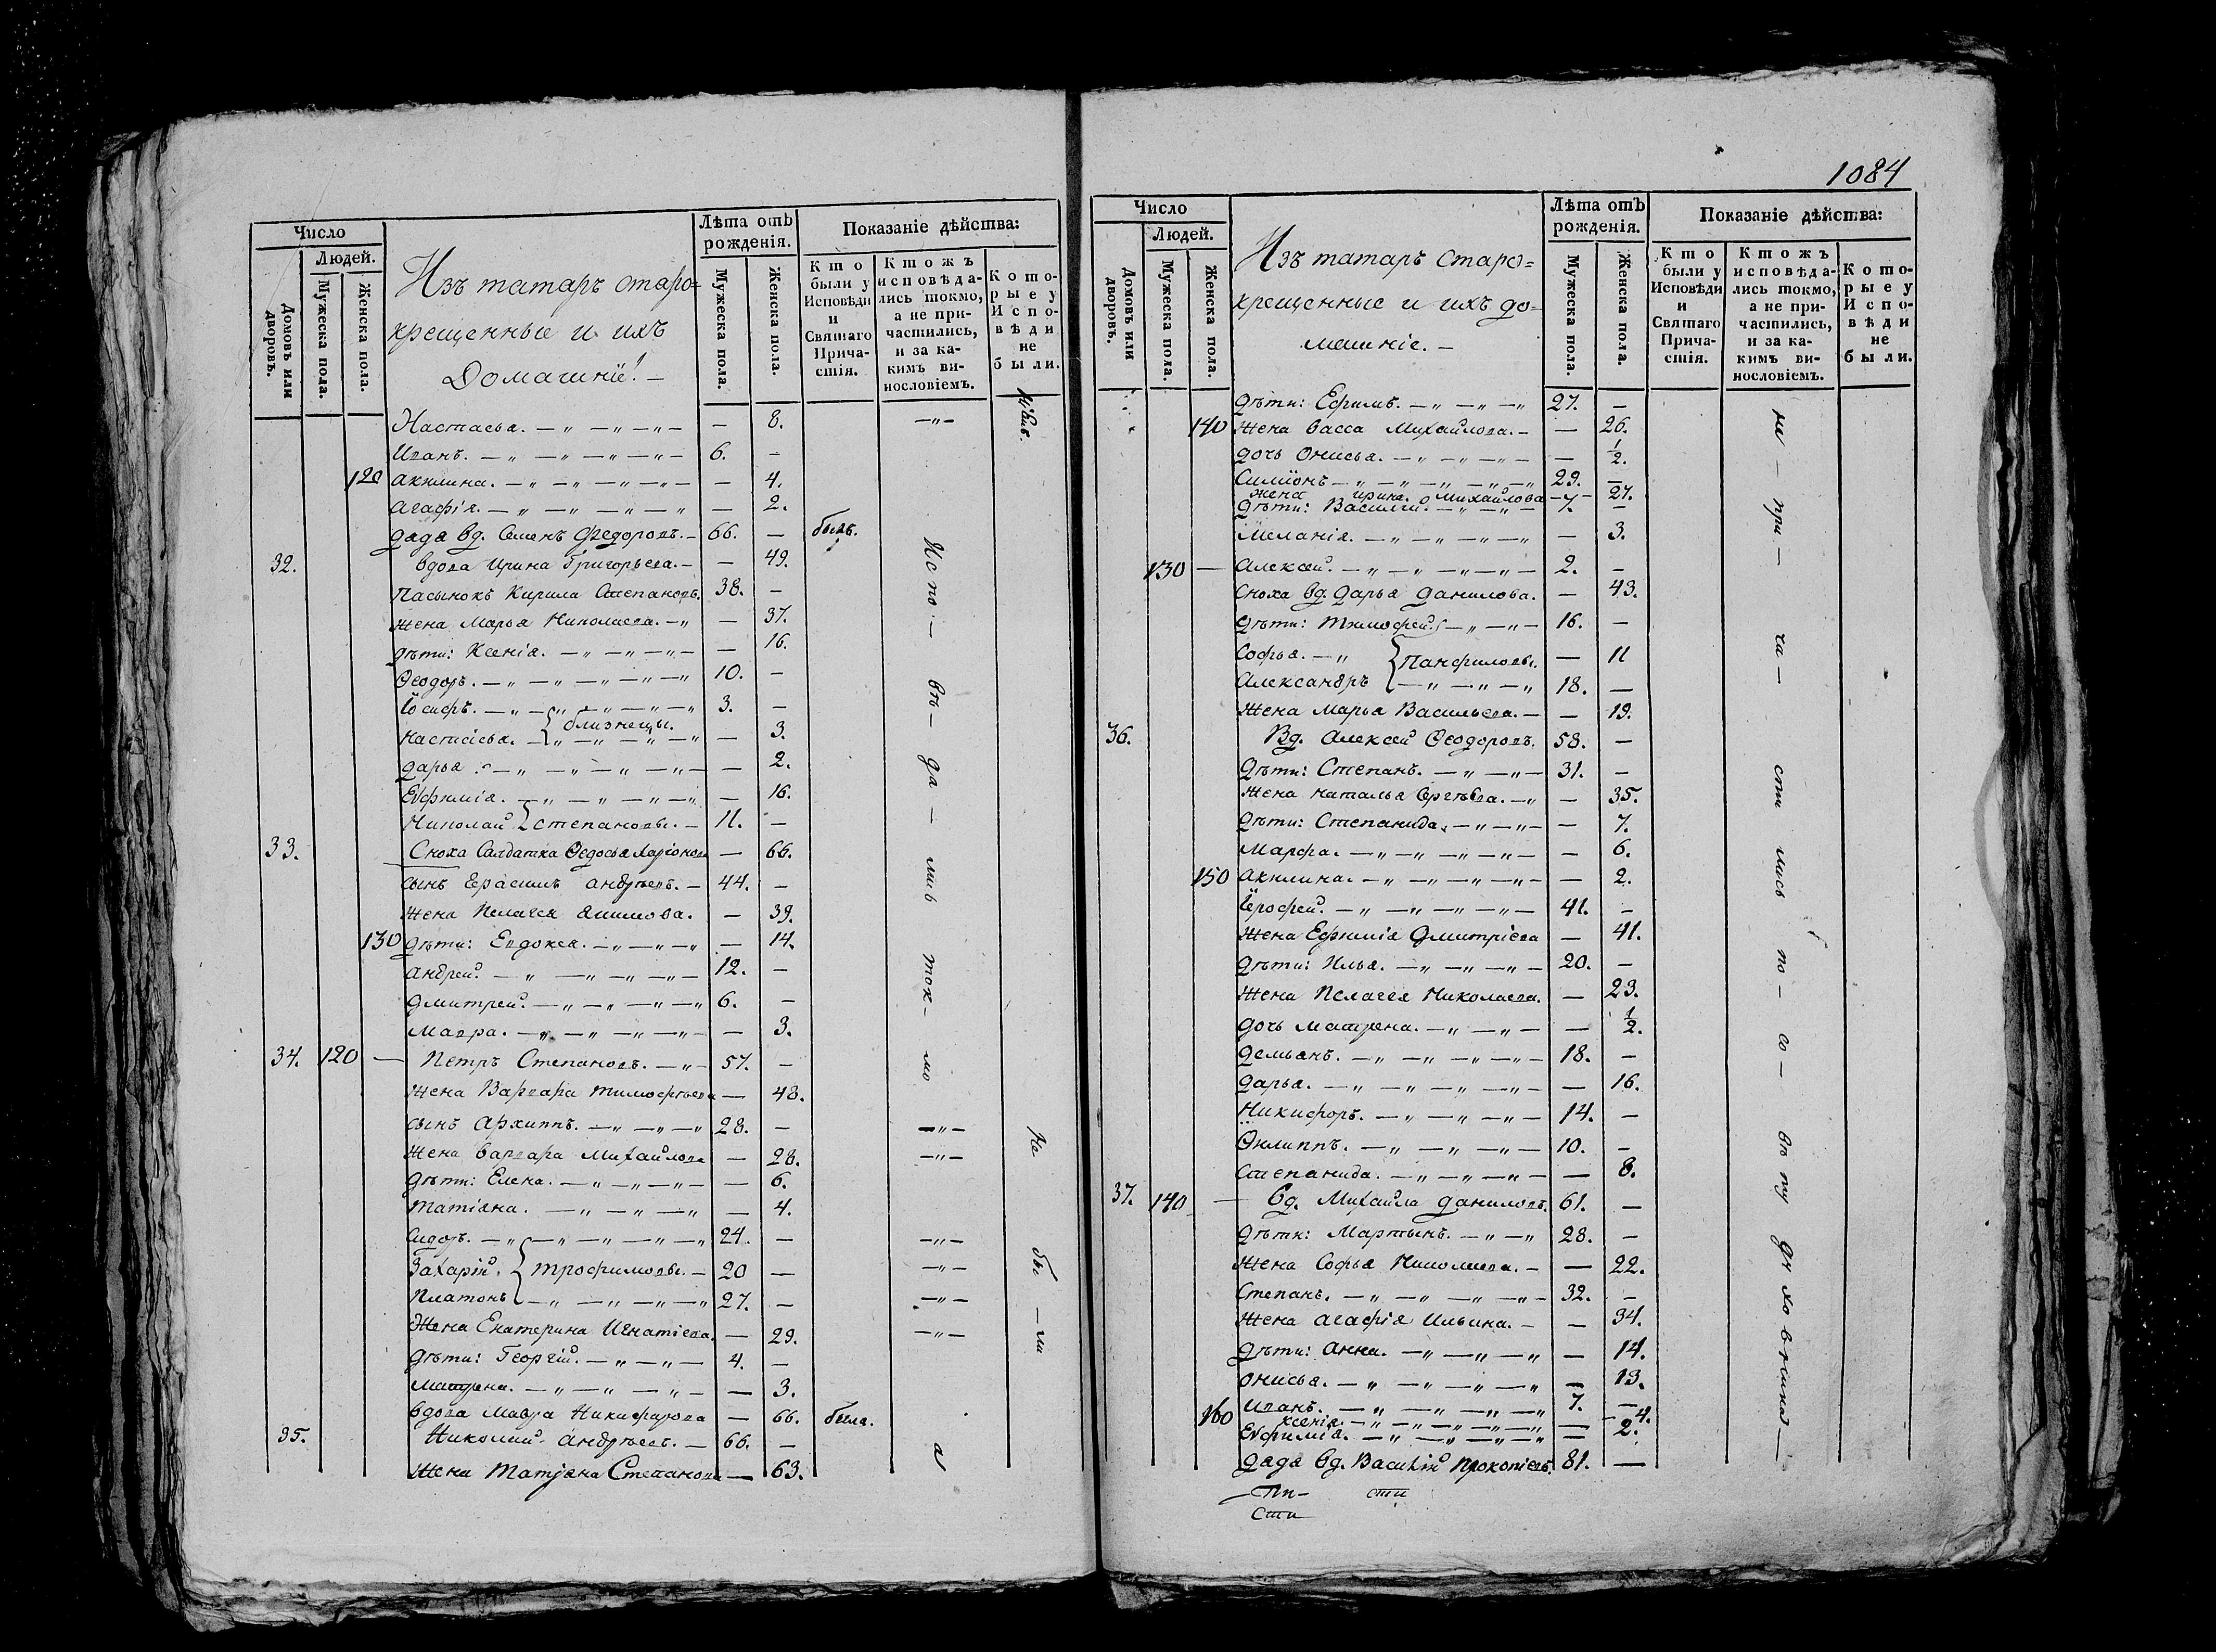 1084
Число
Людей.
Домовъ или дворовъ.
Мужеска пола.
Женска пола.
Изъ татаръ старо=
крещенные и ихъ
Домашніе! —
Лѣта отъ рожденія.
Мужеска пола.
Женска пола.
Показаніе дѣйства:
Кто были у Исповѣди и Святаго Причастія.
Ктожъ исповѣдались токмо, а не причастились, и за какимъ винословіемъ.
Которые у Исповѣди не были.
Настасья. — 8.
Иванъ. 6. —
120 Акилина. — 4.
Агафія. — 2.
дядя вд. Семенъ Федоровъ. — 66. — былъ.
32. вдова Ирина Григорьева. — — 49.
Пасынокъ Кирила Степановъ. 38. —
жена Марья Николаева. — 37.
дѣти: Ксенія. — 16.
Ѳеодоръ. 10. —
Іосифъ. 3. —
близнецы.
Настасья. — 3.
Дарья. — 2.
Евфимія. — 16.
Николай степановы. — 11. —
33. Сноха Салдатка Ѳедосья Ларіонова — 66.
сынъ Герасимъ Андрѣевъ. — 44. —
жена Пелагея Акимова. — 39.
130 дѣти: Евдокея. — 14.
Андрей. 12. —
Дмитрей. 6. —
Мавра. — 3.
34. 120 — Петръ Степановъ. 57. —
жена Варвара Тимофѣева — 48.
сынъ Архиппъ. 28. —
жена Варвара Михайлова — 28.
дѣти: Елена. — 6.
Татіяна. — 4.
Сидоръ. 24. —
Захарій. трофимовы. — 20 —
Платонъ 27. —
Жена Екатерина Игнатіева. — 29.
дѣти: Георгій. 4. —
Матрена. — 3.
вдова Мавра Никифорова — 66. была.
35. Николай Андрѣевъ. — 66. —
жена Татіяна Степанова — 63.
Испо — вѣ — да — лись ток — мо
Не бы — ли
Число
Людей.
Домовъ или дворовъ.
Мужеска пола.
Женска пола.
Изъ татаръ старо=
крещенные и ихъ до=
машніе. —
Лѣта отъ рожденія.
Мужеска пола.
Женска пола.
Показаніе дѣйства:
Кто были у Исповѣди и Святаго Причастія.
Ктожъ исповѣдались токмо, а не причастились, и за какимъ винословіемъ.
Которые у Исповѣди не были.
дѣти: Ефимъ. 27. —
140 жена Васса Михайлова. — — 26.
дочь Онисья. — 1/2.
Симіонъ 29. —
жена Ирина Михайлова — 27.
дѣти: Василій. 7. —
Меланія. — 3.
130 — Алексей. 2. —
Сноха вд. Дарья Данилова. — 43.
дѣти: Тимофей. 16. —
Софья. Панфиловы. — 11
Александръ 18. —
жена Марья Васильева. — — 19.
36. Вд. Алексей Ѳеодоровъ. 58. —
дѣти: Степанъ. 31. —
жена Наталья Сергѣева. — 35.
дѣти: Степанида. — 7.
Марфа. — 6.
150 Акилина. — 2.
Ерофей. 41. —
жена Ефимія Дмитріева — 41.
дѣти: Илья. 20. —
жена Пелагея Николаева. — 23.
дочь Матрена. — 1/2.
Демьянъ. 18. —
Дарья. — 16.
Никифоръ. 14. —
Филиппъ. 10. —
Степанида. — 8.
37. 140 — Вд. Михайла Даниловъ. 61. —
дѣти: Мартынъ. 28. —
жена Софья Николаева. — — 22.
Степанъ. 32. —
жена Агафія Ильина. — — 34.
дѣти: Анна. — 14.
Онисья. — 13.
Иванъ. 7. —
160 Ксенія. — 4.
Евфимія. — 2.
дядя вд. Василій Прокопіевъ. 81. —
не — при — ча — сти лись по — со — вѣ ту духовника —